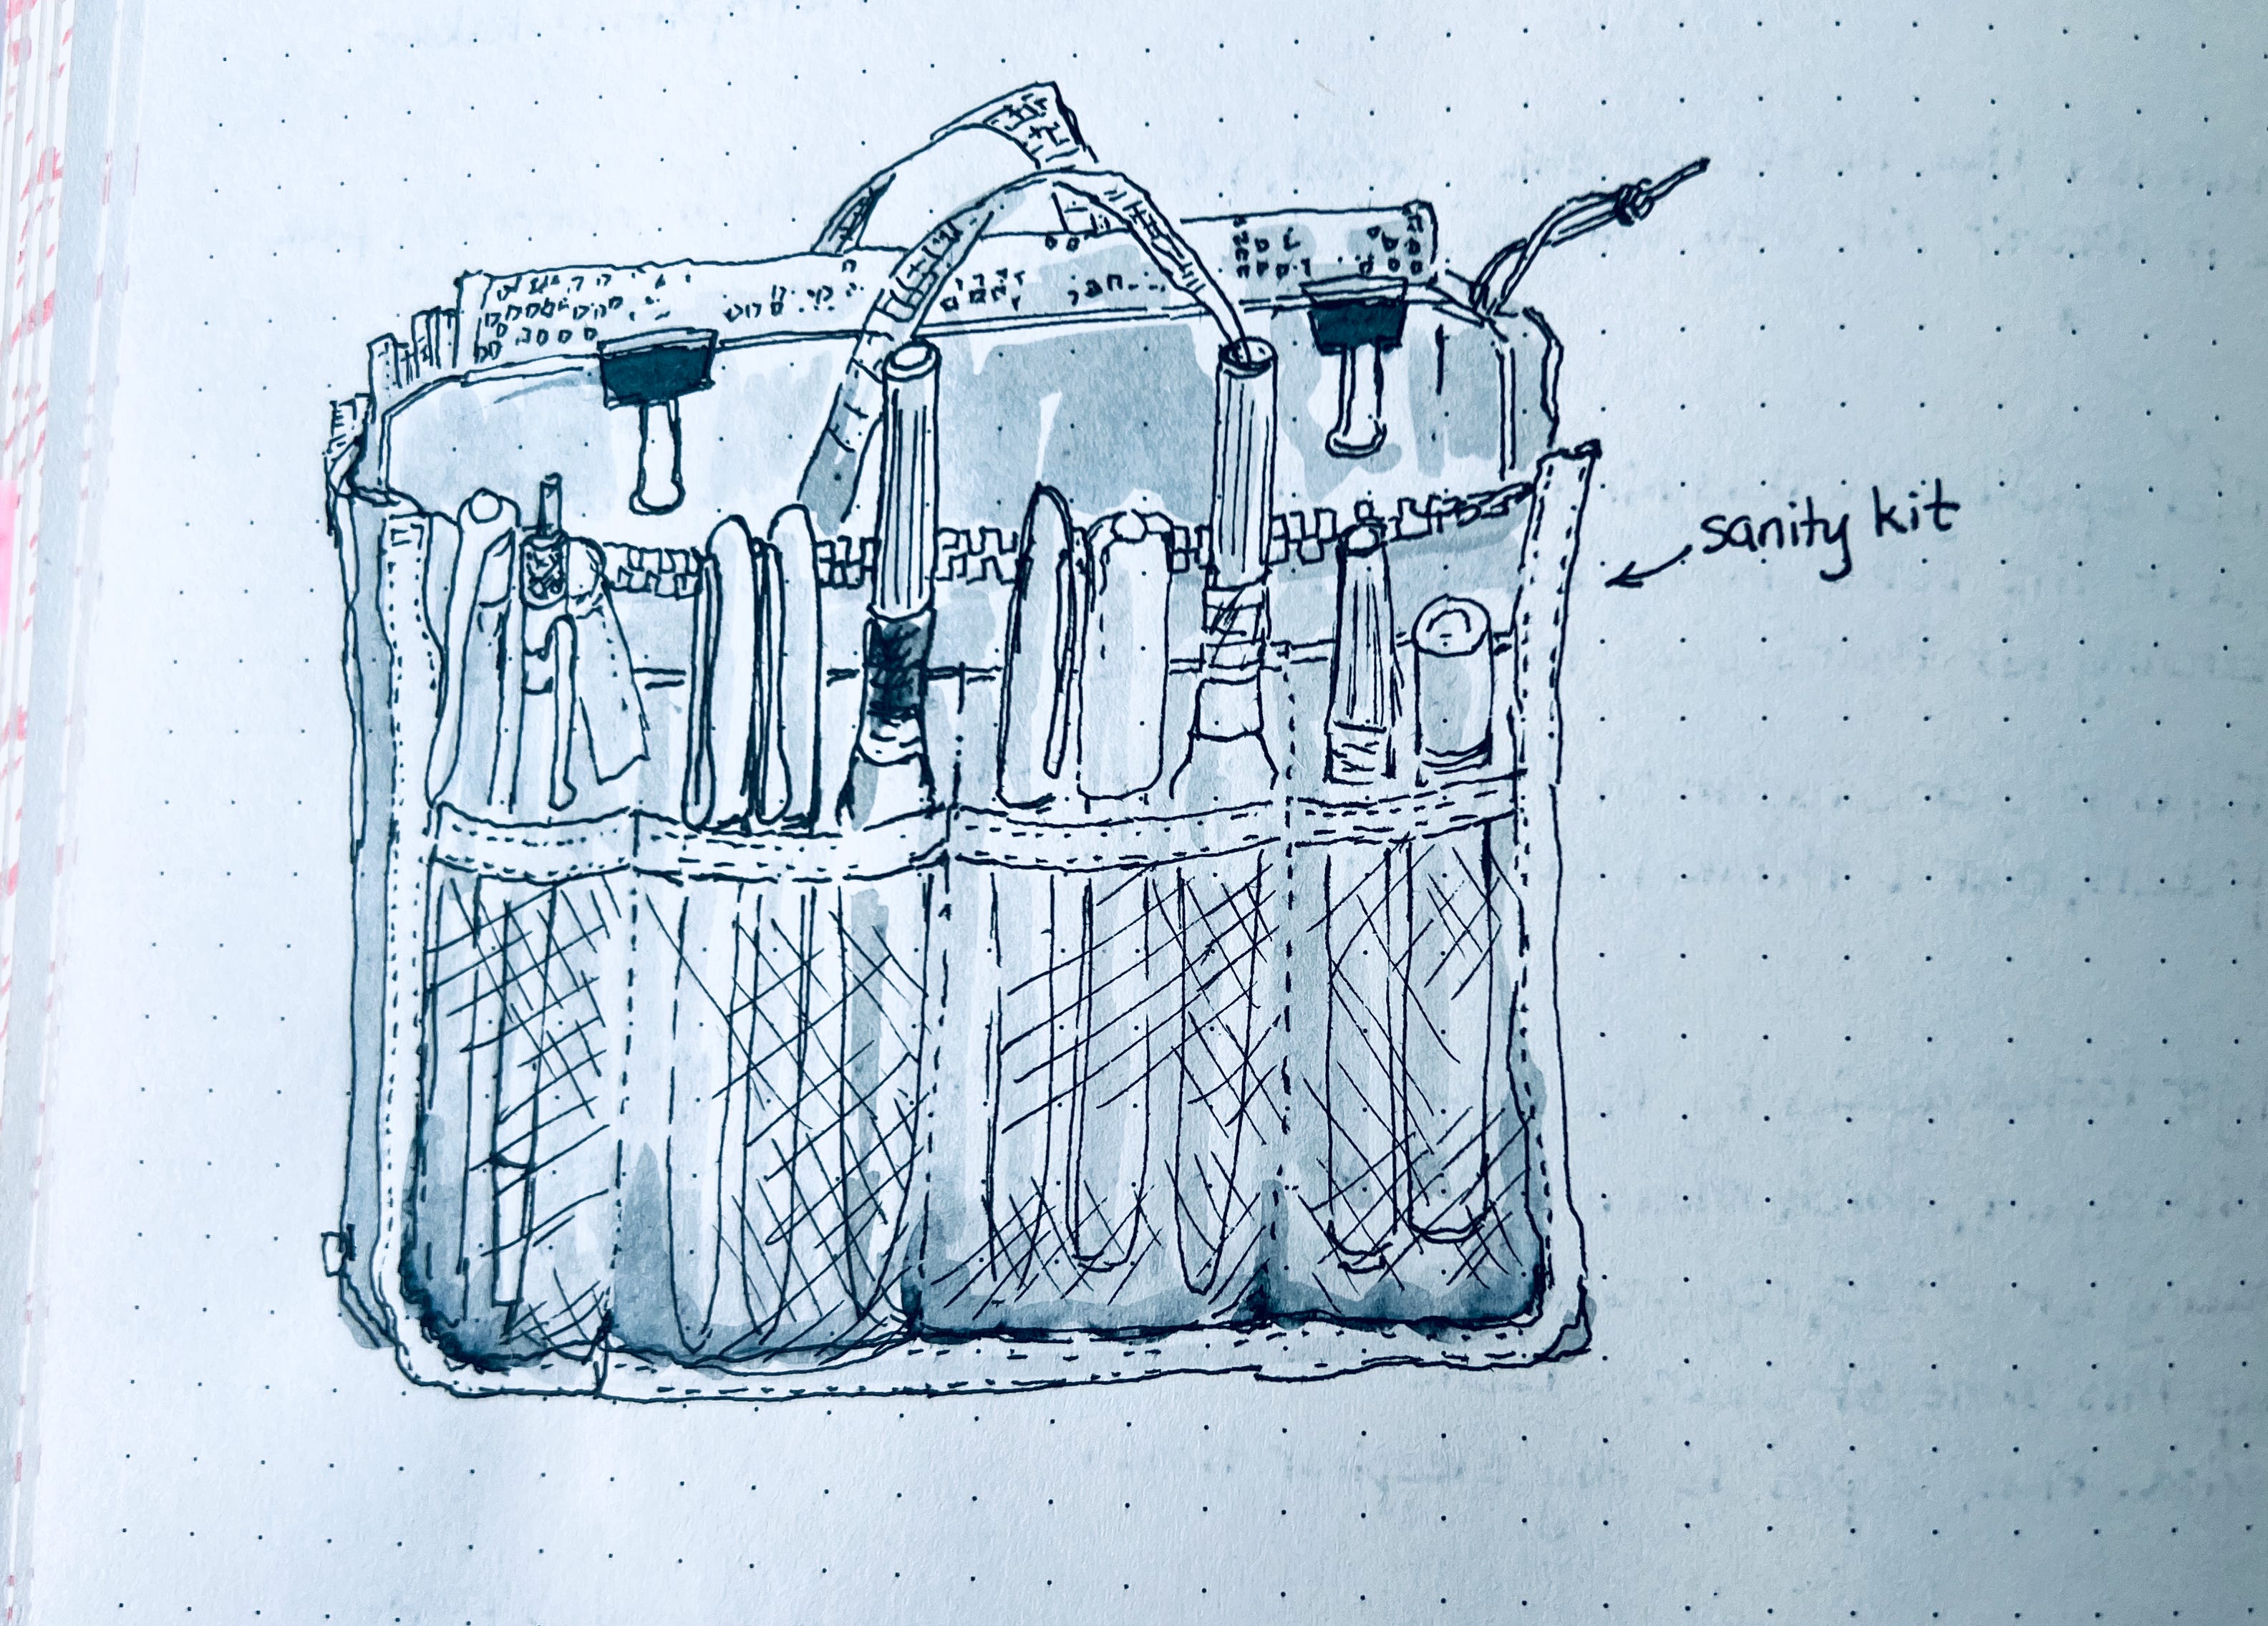 sanity kit